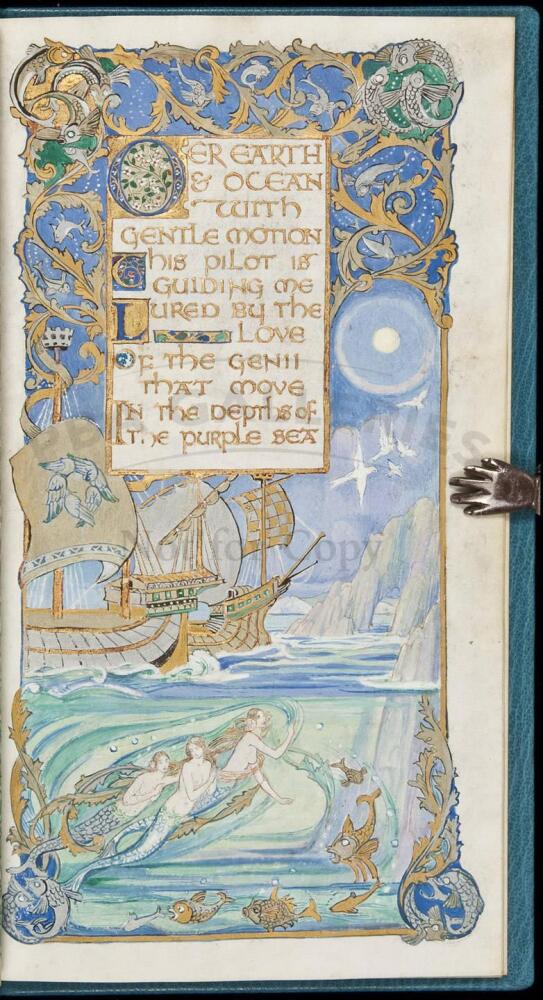 OER EARTH
& OCEAN
WITH
GENTLE MOTION
THIS PILOT IS
GUIDING ME
LURED BY THE
LOVE
OF THE GENII
THAT MOVE
IN THE DEPTHS OF
THE PURPLE SEA
PBA GALLERIES
Not for Copy